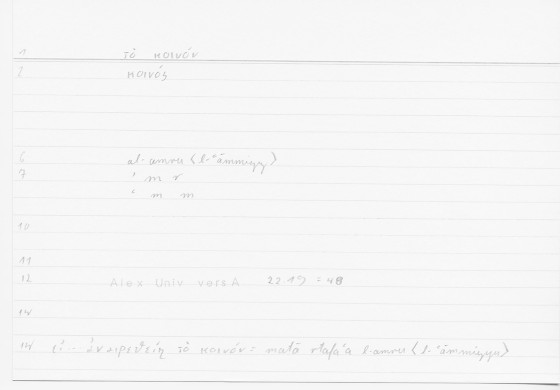 1 τὸ κοινόν
2 κοινός
6 al-amru 〈l-ʿāmmiyy〉
7 ʾ m r
ʿ m m
10
11
12 Alex Univ vers A 22.19 = 48
14
εἰ - ἀναιρεθείη τὸ κοινόν = matā rtafaʿa l-amru 〈l-ʿāmmiyyu〉